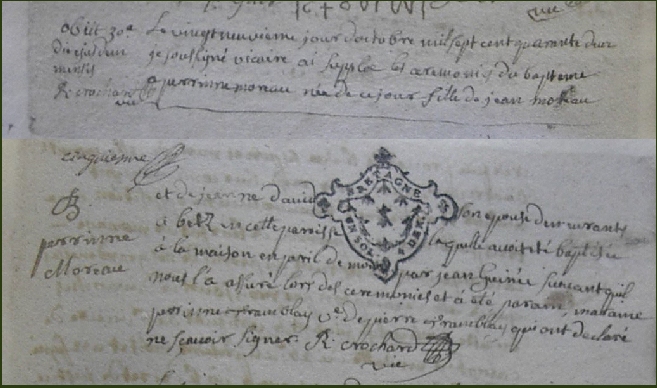 obiit 30a
die ejusdem
mensis
R crochard
vic
Le vingt neuvieme jour doctobre mil sept cent quarante deux
je soussigné vicaire ai supplée les ceremonies du bapteme
a perrinne moreau née de ce jour fille de jean moreau
cinquieme
B
perrinne
Moreau
et de jeanne david son epouse demeurants
BRETAGNE
EN SOL
2 DEN
a betz en cette parroisse laquelle avoit été baptisée
a la maison en peril de mort par jean Guinée suivant quil
nous l'a assuré lors des ceremonies et a été parain, maraine
perrinne tramblay ve de pierre tramblay qui ont declaré
ne scavoir signer R. crochard
vic